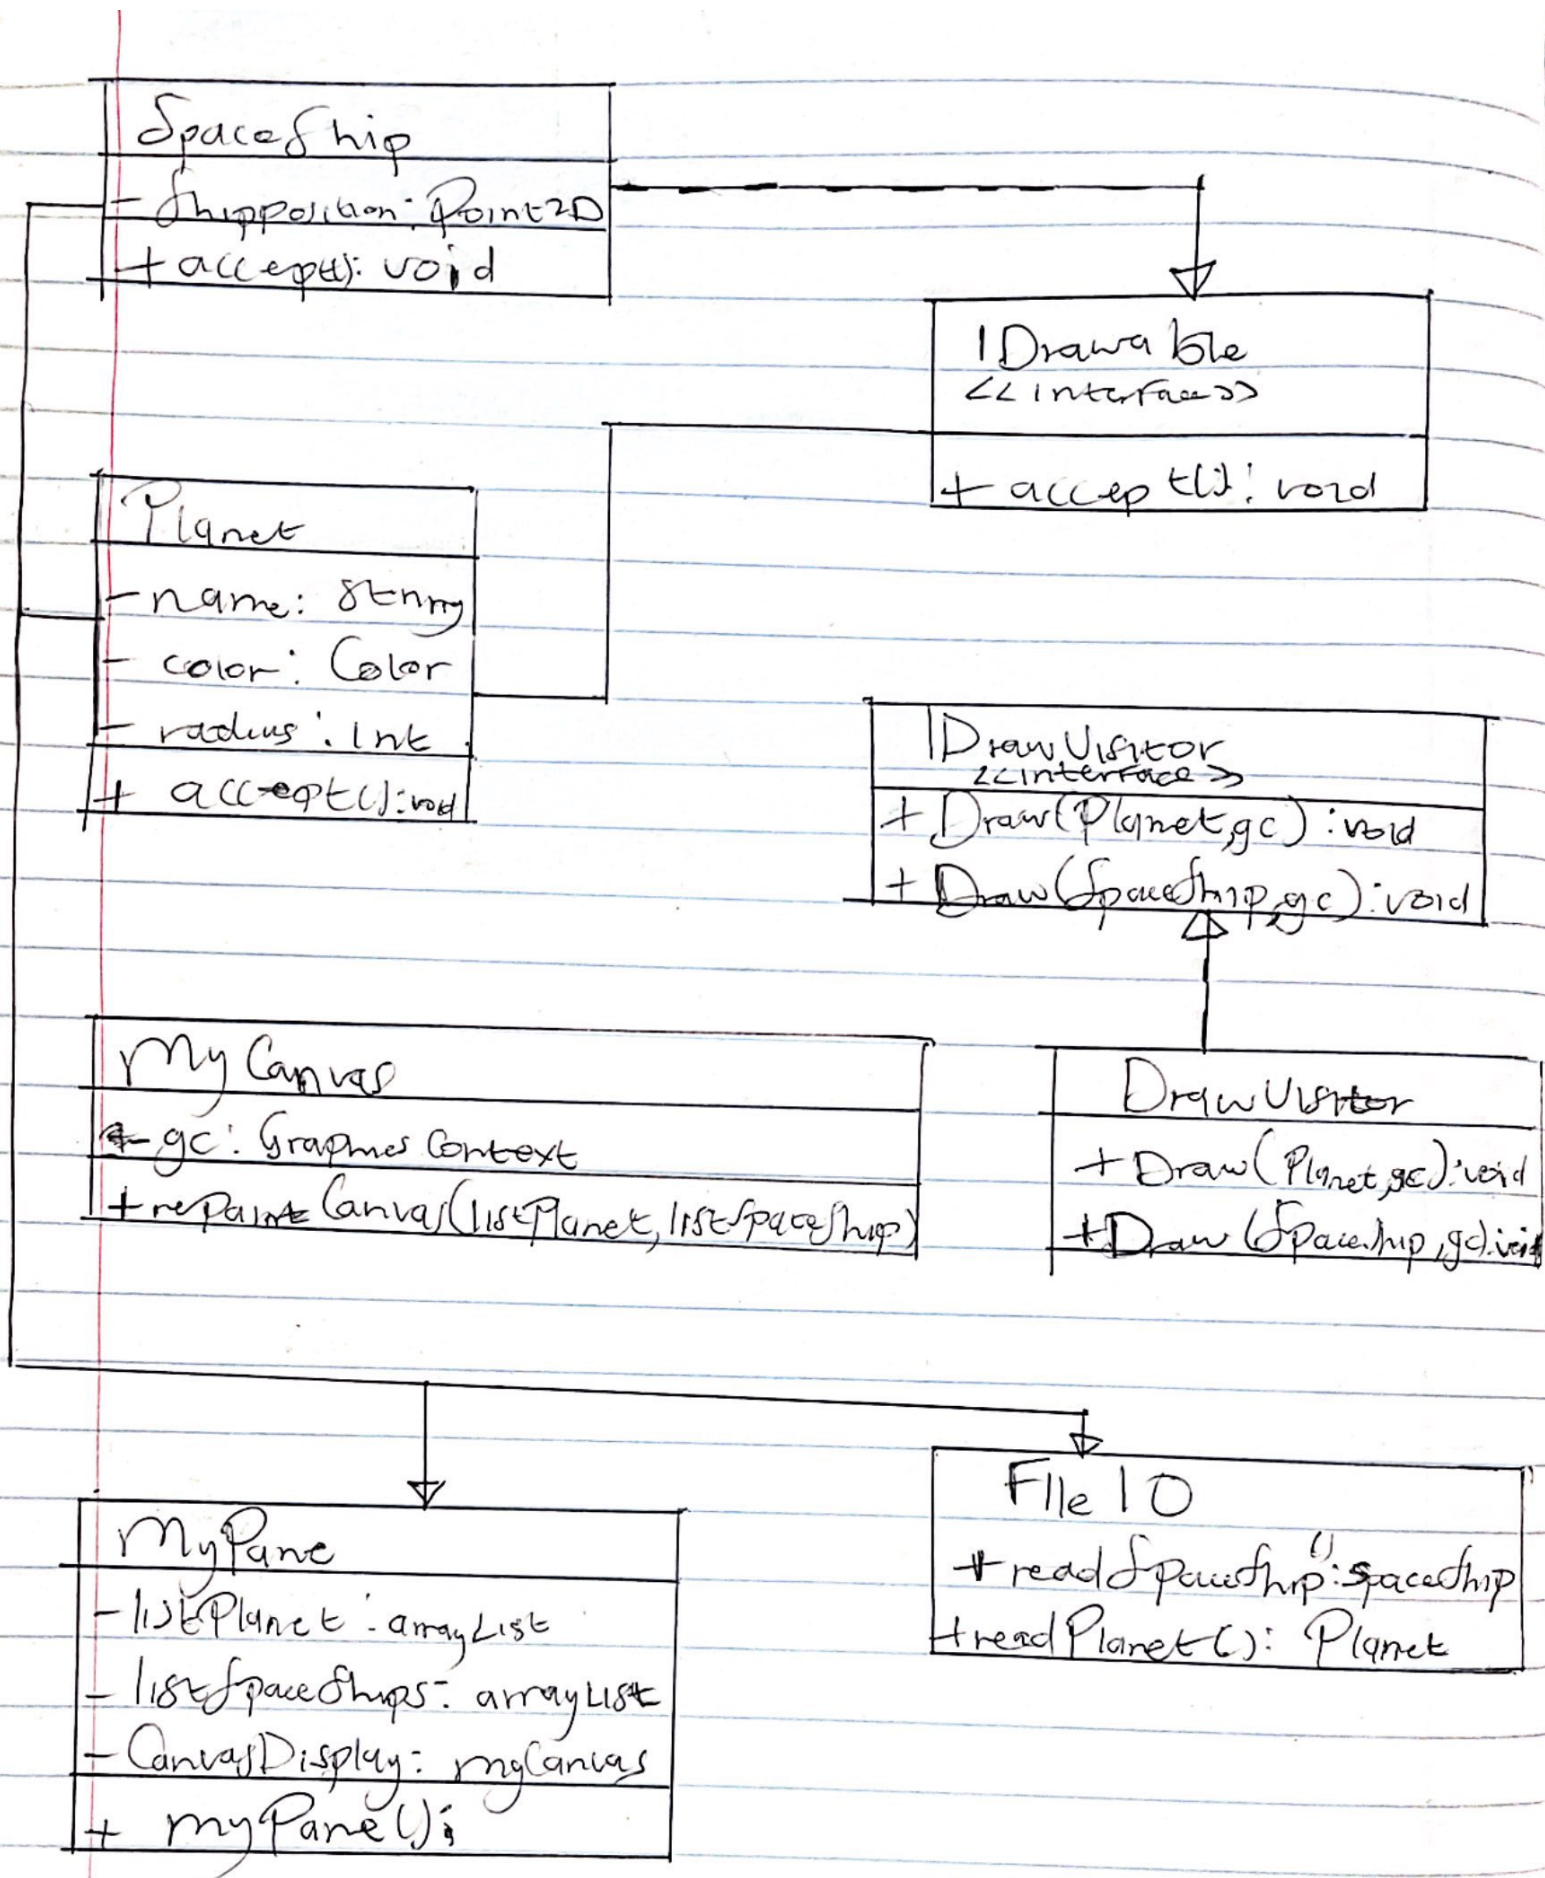 SpaceShip
- Shipposition: Point2D
+ accept(): void
IDrawable
<<interface>>
+ accept(): void
Planet
- name: String
- color: Color
- radius: Int
+ accept(): void
IDrawVisitor
<<interface>>
+ Draw(Planet,gc): void
+ Draw(SpaceShip,gc): void
MyCanvas
- gc: Graphics Context
+ repaint Canvas(listPlanet, listSpaceShip)
DrawVisitor
+ Draw(Planet,gc): void
+ Draw(SpaceShip,gc): void
MyPane
- listPlanet: arrayList
- listSpaceShips: arrayList
- CanvasDisplay: myCanvas
+ myPane();
FIleIO
+ readSpaceShip(): SpaceShip
+ readPlanet(): Planet